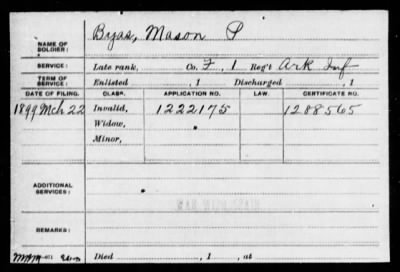 NAME OF SOLDIER: Byas, Mason P
SERVICE: Late rank, Co. F, 1 Reg't Ark Inf
TERM OF SERVICE: Enlisted , 1 Discharged , 1
DATE OF FILING. CLASS. APPLICATION NO. LAW. CERTIFICATE NO.
1899 Mch 22 Invalid, 1222175 1288565
Widow,
Minor,
ADDITIONAL SERVICES:
REMARKS:
Died , 1 , at